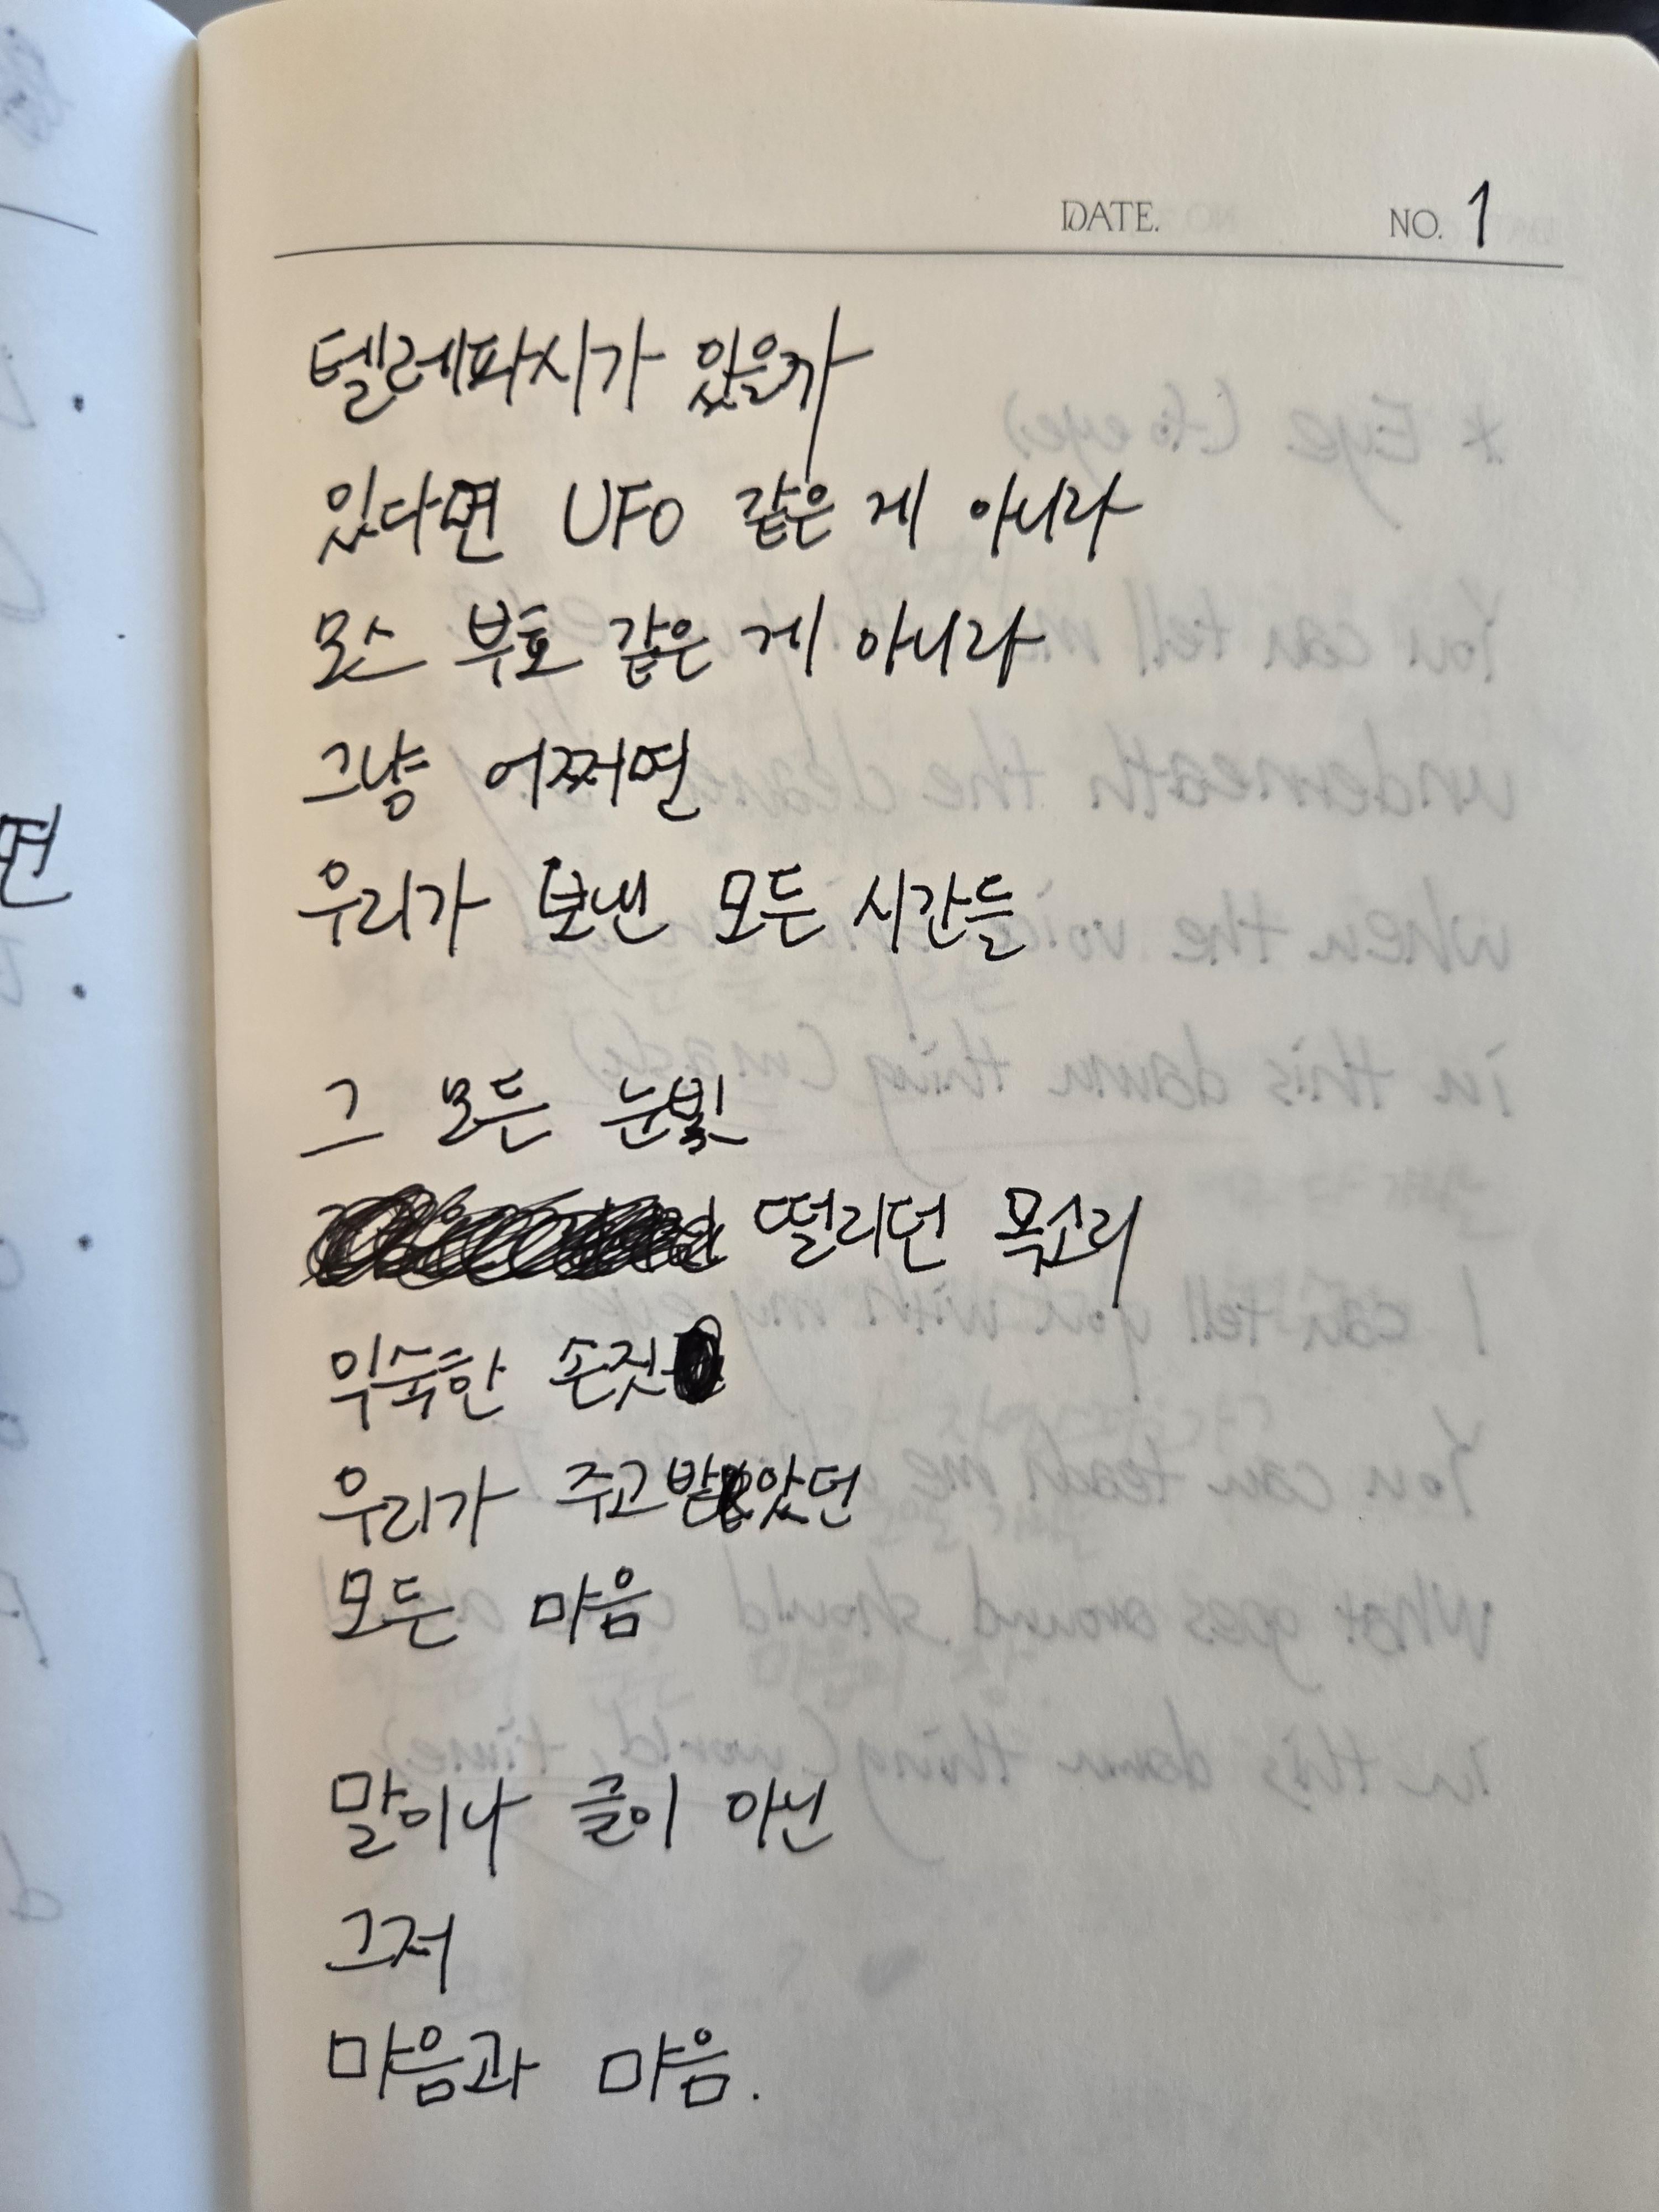 DATE. NO. 1
텔레파시가 있을까
있다면 UFO 같은 게 아니라
모스 부호 같은 게 아니라
그냥 어쩌면
우리가 보낸 모든 시간들
그 모든 눈빛
떨리던 목소리
익숙한 손짓
우리가 주고받았던
모든 마음
말이나 글이 아닌
그저
마음과 마음.
면